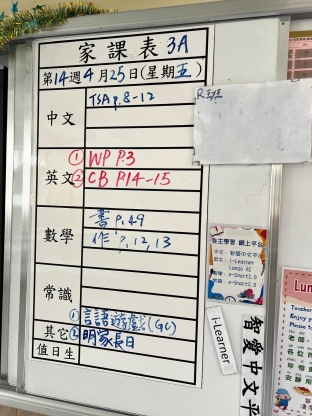 家課表 3A
第14週4月25日(星期五)
中文
TSA p.8-12
英文
① WP P.3
② CB P.14-15
數學
書 p.49
作 p.12,13
常識
其它
① 言語遊戲(GC)
② 明家長日
值日生
R班
自主學習 網上平台
i-Learner
智愛中文平